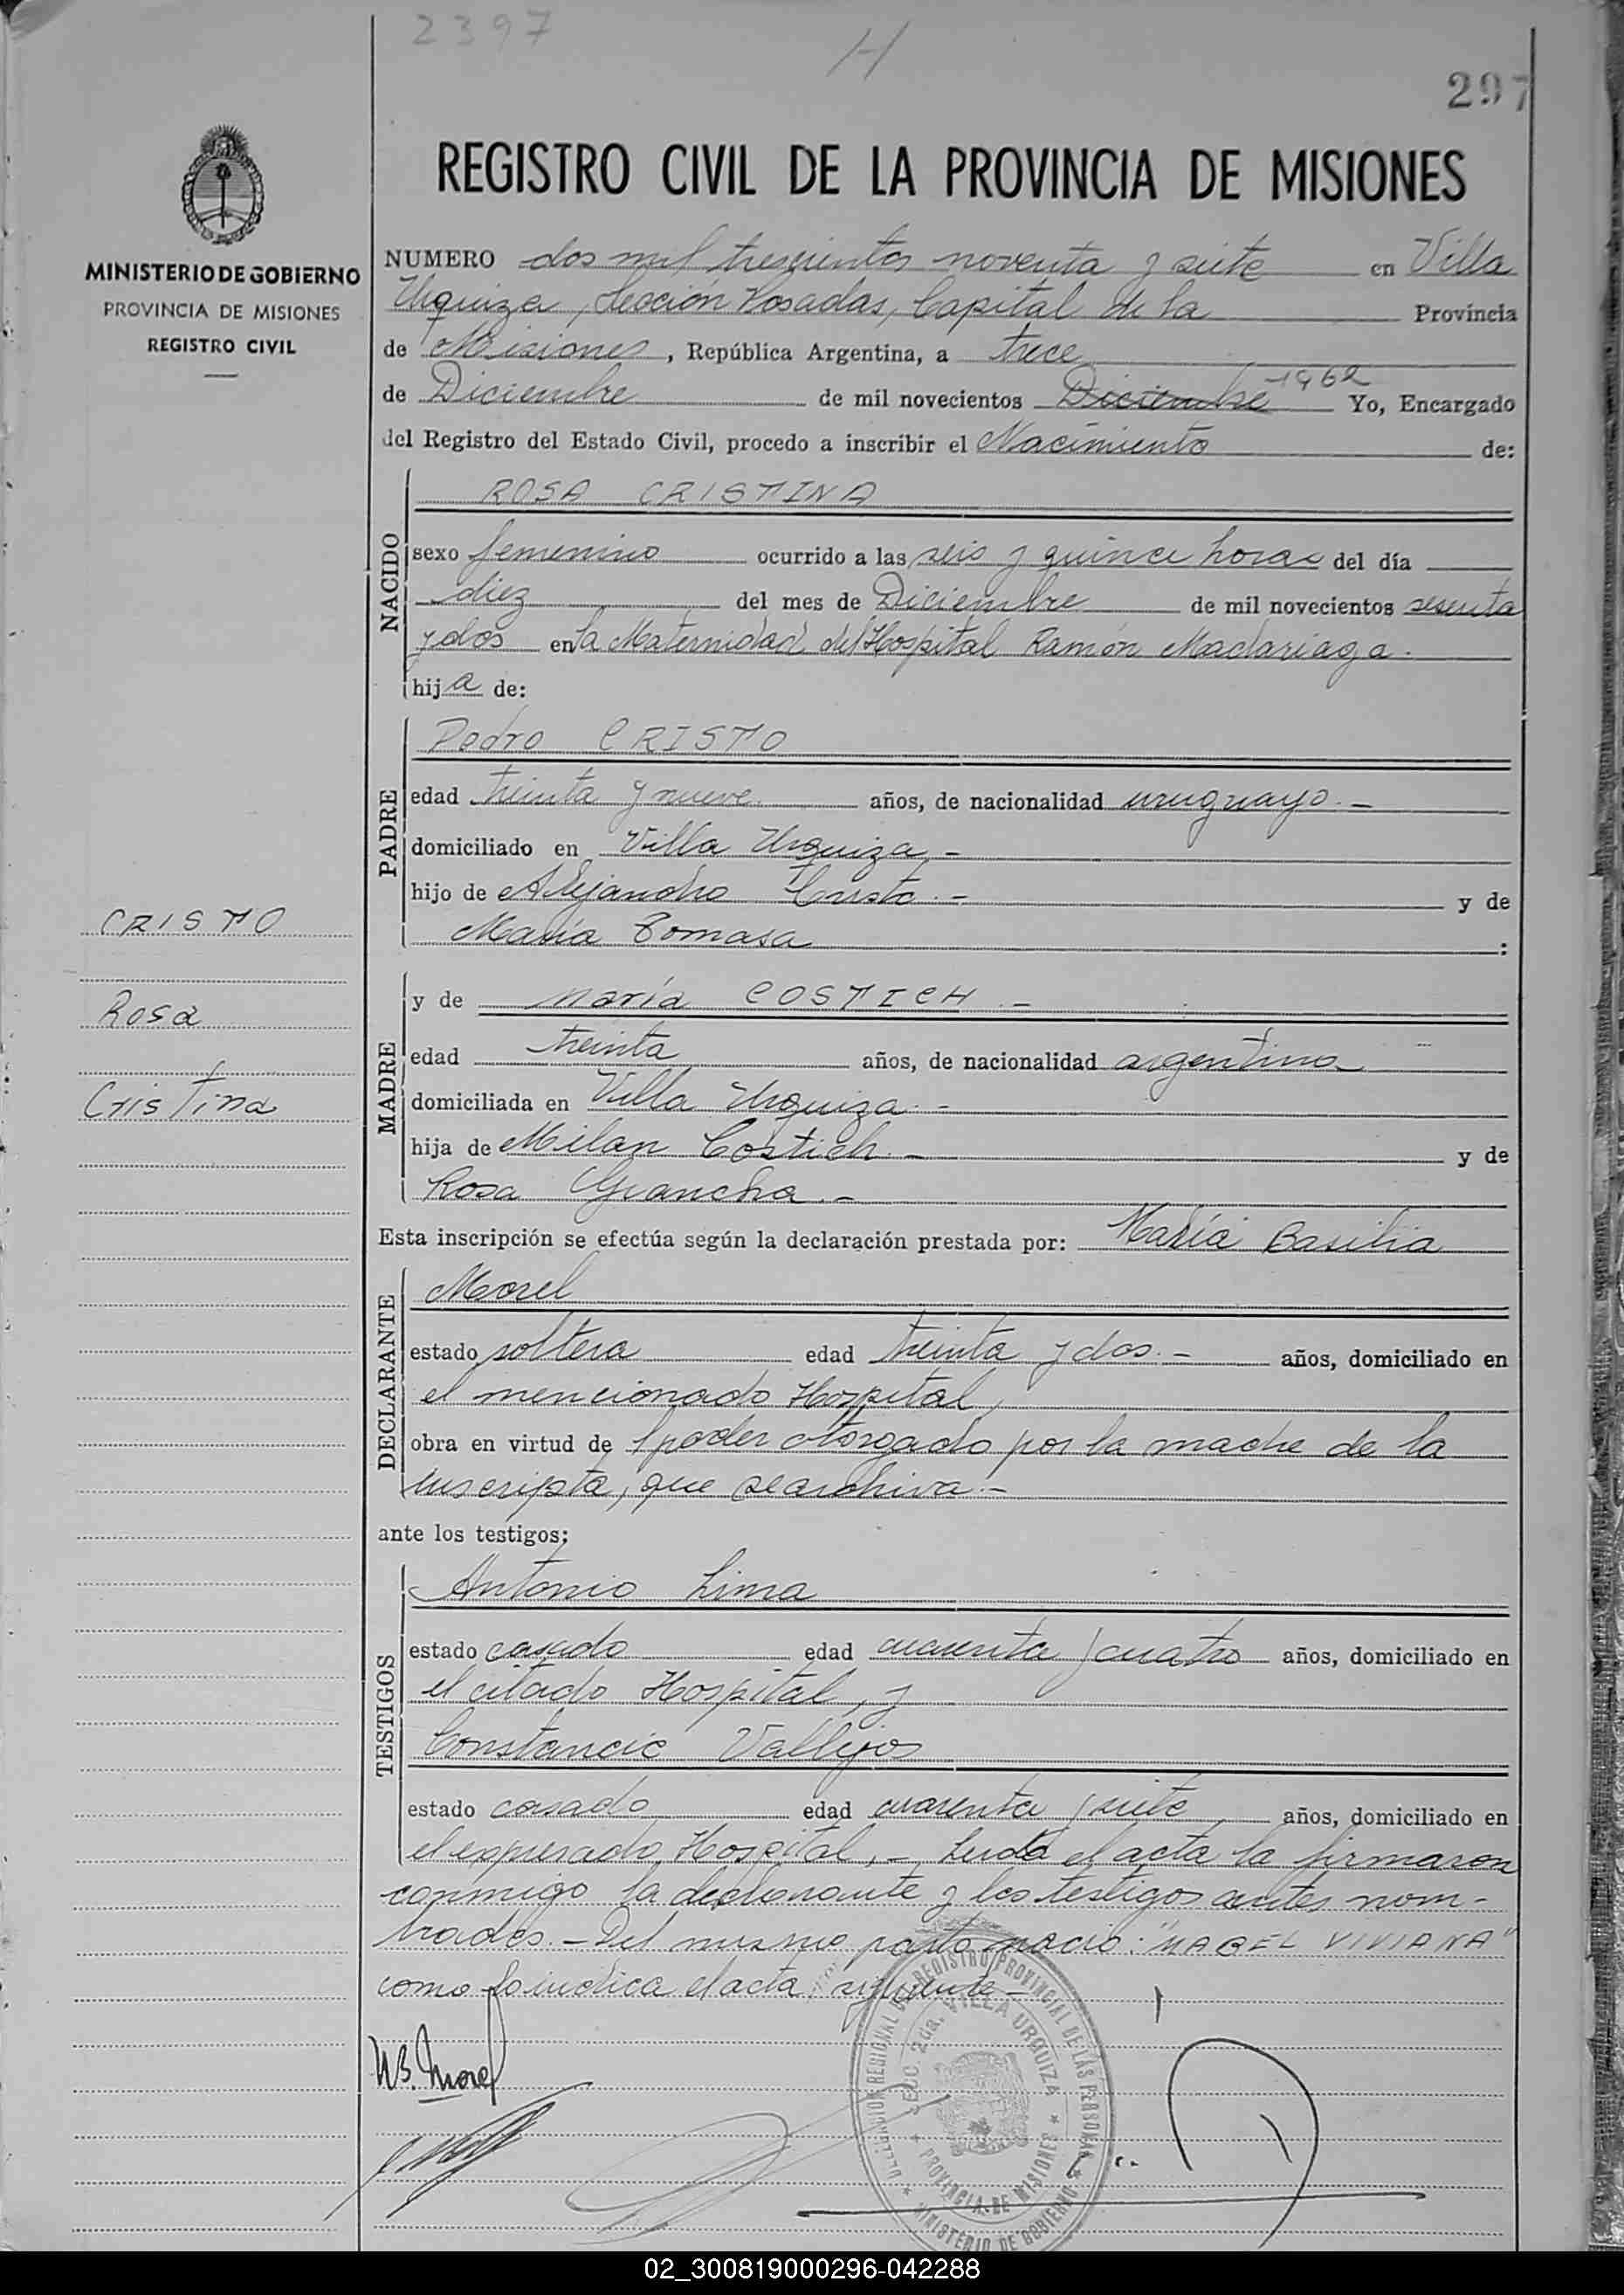 2397
H
297
REGISTRO CIVIL DE LA PROVINCIA DE MISIONES
MINISTERIO DE GOBIERNO
PROVINCIA DE MISIONES
REGISTRO CIVIL
NUMERO dos mil trescientos noventa y siete en Villa
Urquiza, Sección Posadas, Capital de la Provincia
de Misiones, República Argentina, a trece
de Diciembre de mil novecientos Diciembre 1962 Yo, Encargado
del Registro del Estado Civil, procedo a inscribir el Nacimiento de:
NACIDO
ROSA CRISTINA
sexo femenino ocurrido a las seis y quince horas del día
diez del mes de Diciembre de mil novecientos sesenta
y dos en la Maternidad del Hospital Ramón Madariaga.
hija de:
PADRE
Pedro CRISTO
edad treinta y nueve años, de nacionalidad uruguayo.-
domiciliado en Villa Urquiza.-
hijo de Alejandro Cristo.- y de
María Tomasa :
CRISTO
Rosa
Cristina
MADRE
y de María COSTICH.-
edad treinta años, de nacionalidad argentina
domiciliada en Villa Urquiza.-
hija de Milan Costich.- y de
Rosa
Esta inscripción se efectúa según la declaración prestada por: María Basilia
DECLARANTE
Morel
estado soltera edad treinta y dos.- años, domiciliado en
el mencionado Hospital,
obra en virtud de poder otorgado por la madre de la
inscripta, que se archiva.-
ante los testigos:
TESTIGOS
Antonio Lima
estado casado edad cuarenta y cuatro años, domiciliado en
el citado Hospital, y
Constancio Vallejos
estado casado edad cuarenta y siete años, domiciliado en
el expresado Hospital.- Leida el acta la firmaron
conmigo la declarante y los testigos antes nom-
brados.- Del mismo parto nació: "MABEL VIVIANA"
como lo indica el acta siguiente.-
M B. Morel
DELEGACION REGIONAL DEL REGISTRO PROVINCIAL DE LAS PERSONAS
SECC. 2da. VILLA URQUIZA
PROVINCIA DE MISIONES
MINISTERIO DE GOBIERNO
02_300819000296-042288